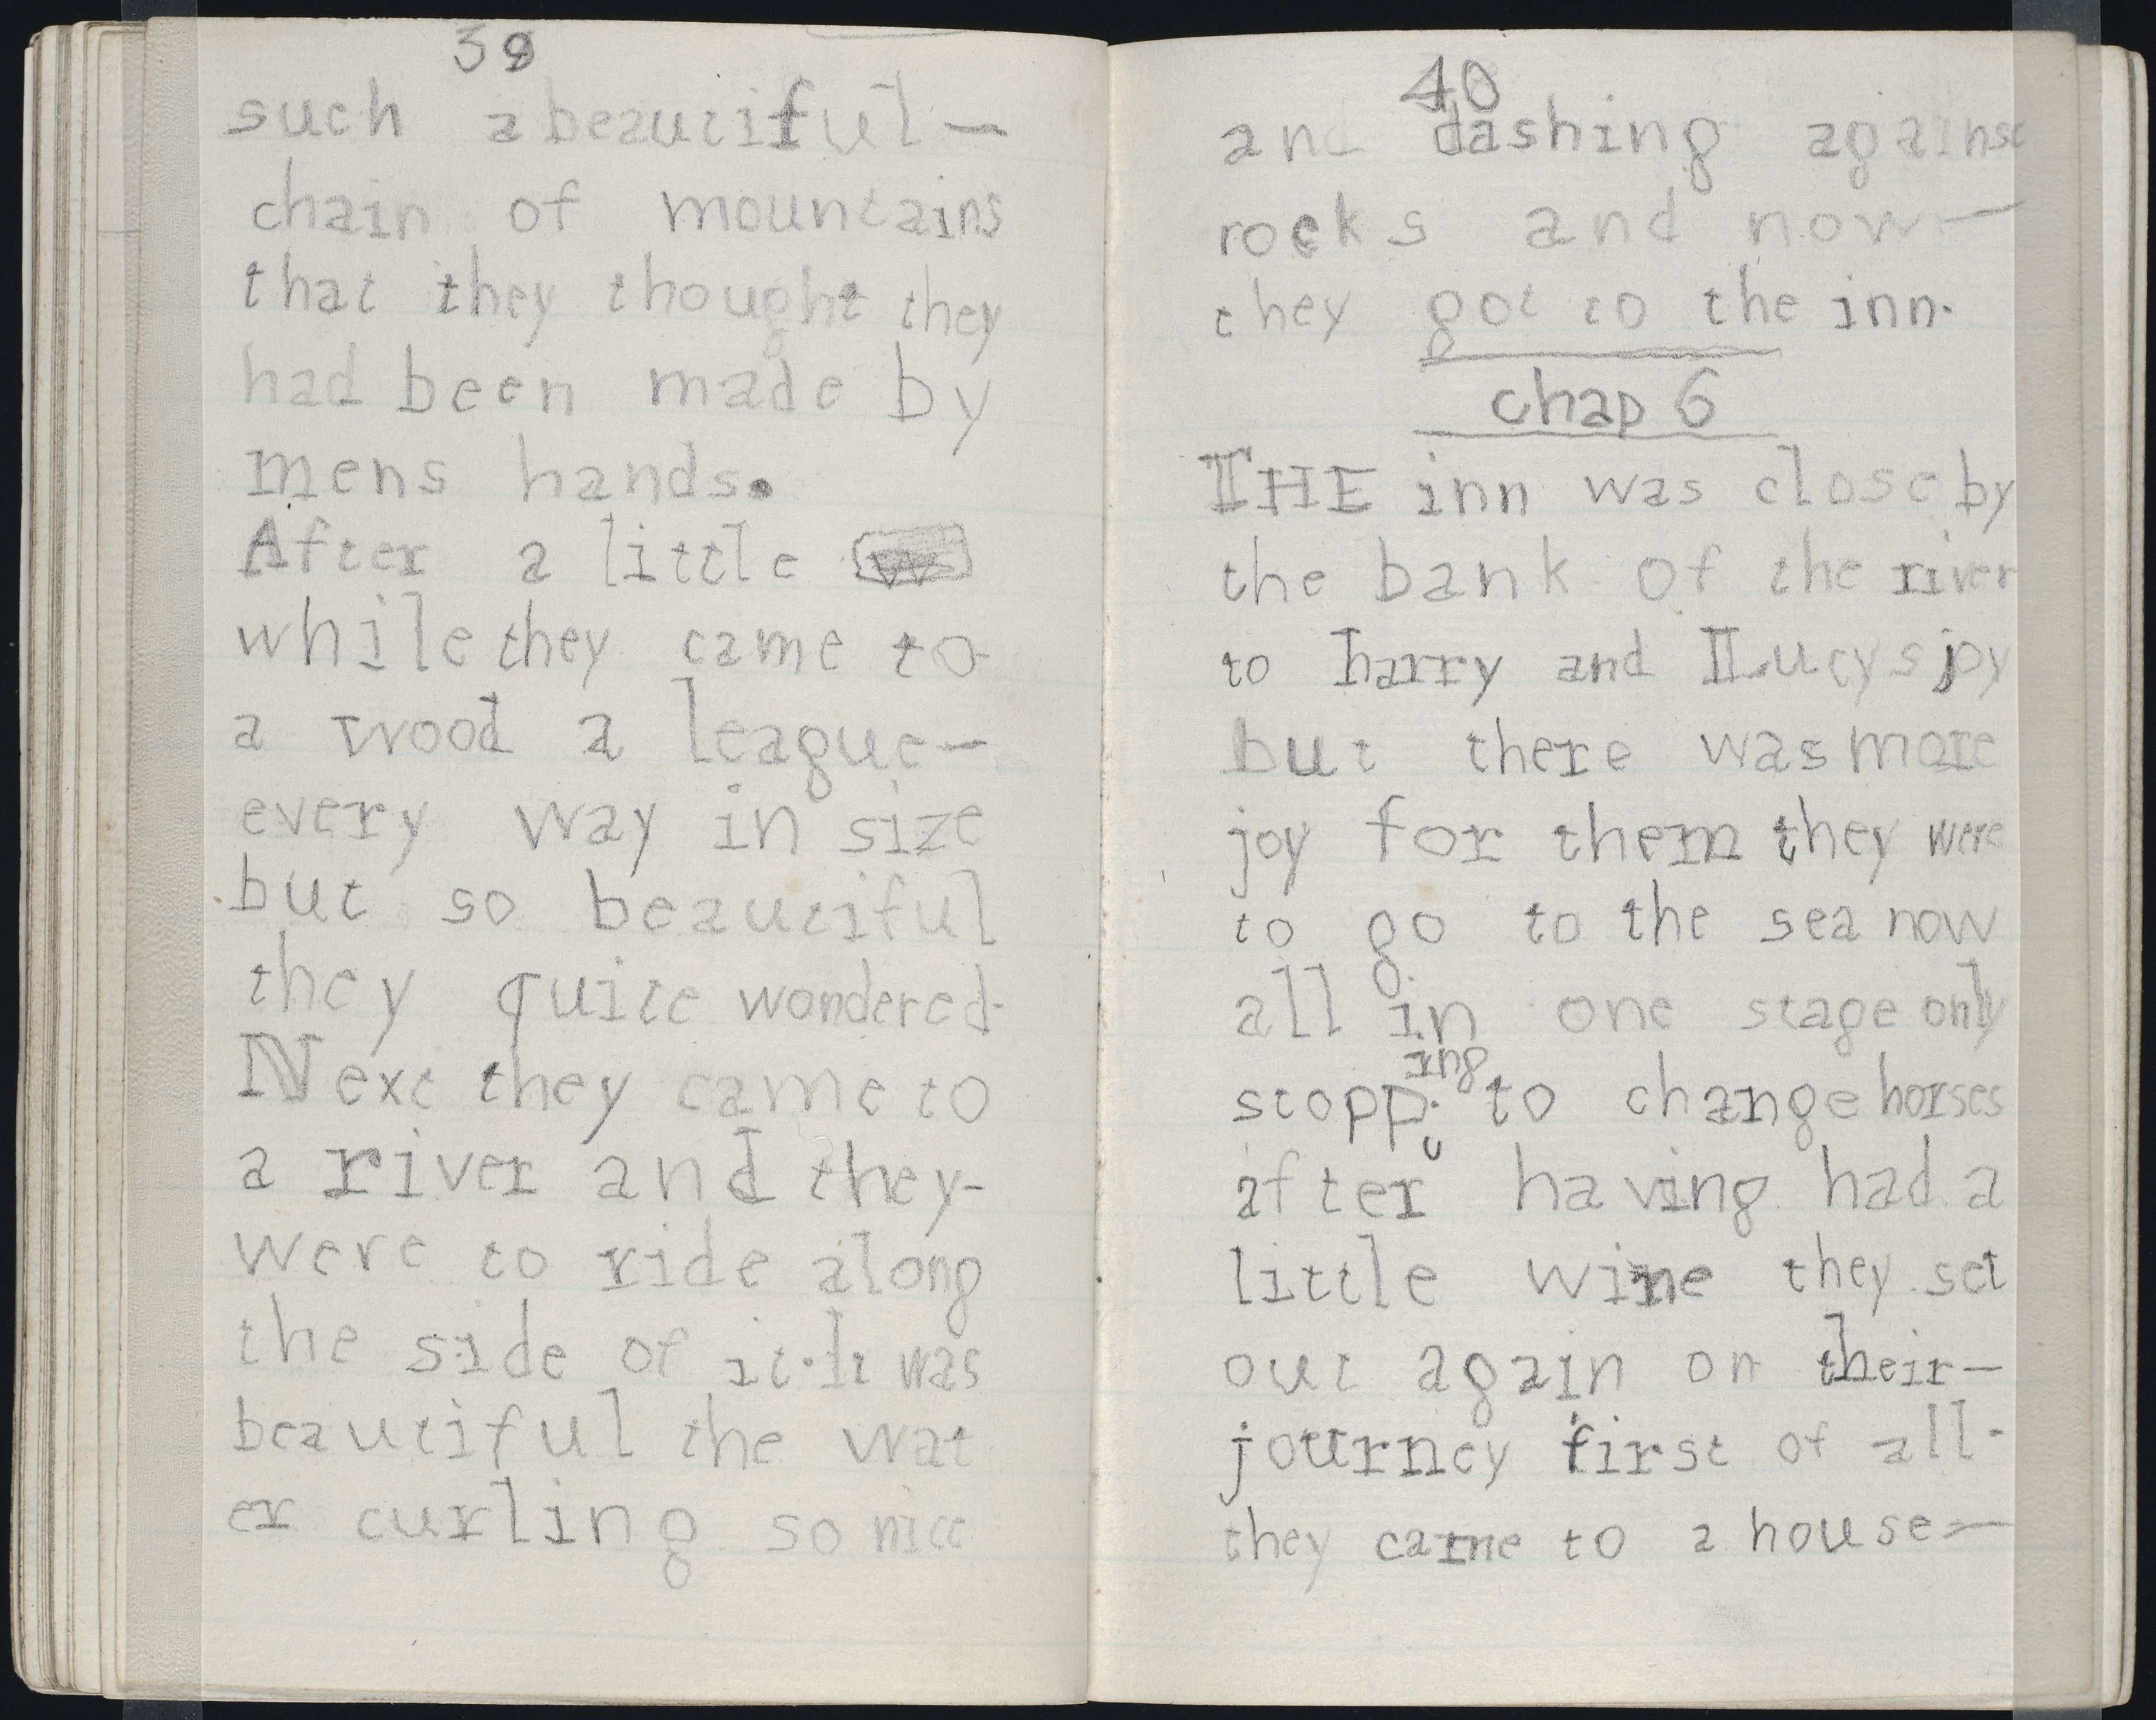 39
such a beautiful —
chain of mountains
that they thought they
had been made by
mens hands.
After a little
while they came to
a wood a league —
every way in size
but so beautiful
they quite wondered.
Next they came to
a river and they-
were to ride along
the side of it. It was
beautiful the wat
er curling so nice
40
and dashing against
rocks and now —
they got to the inn.
chap 6
THE inn was close by
the bank of the river
to harry and Lucys joy
but there was more
joy for them they were
to go to the sea now
all in one stage only
stopping to change horses
after having had a
little wine they set
out again on their —
journey first of all.
they came to a house —